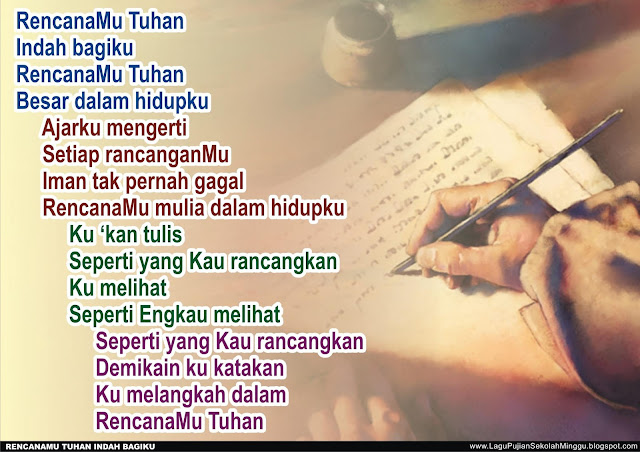 RencanaMu Tuhan
Indah bagiku
RencanaMu Tuhan
Besar dalam hidupku
Ajarku mengerti
Setiap rancanganMu
Iman tak pernah gagal
RencanaMu mulia dalam hidupku
Ku ‘kan tulis
Seperti yang Kau rancangkan
Ku melihat
Seperti Engkau melihat
Seperti yang Kau rancangkan
Demikain ku katakan
Ku melangkah dalam
RencanaMu Tuhan
RENCANAMU TUHAN INDAH BAGIKU
www.LaguPujianSekolahMinggu.blogspot.com